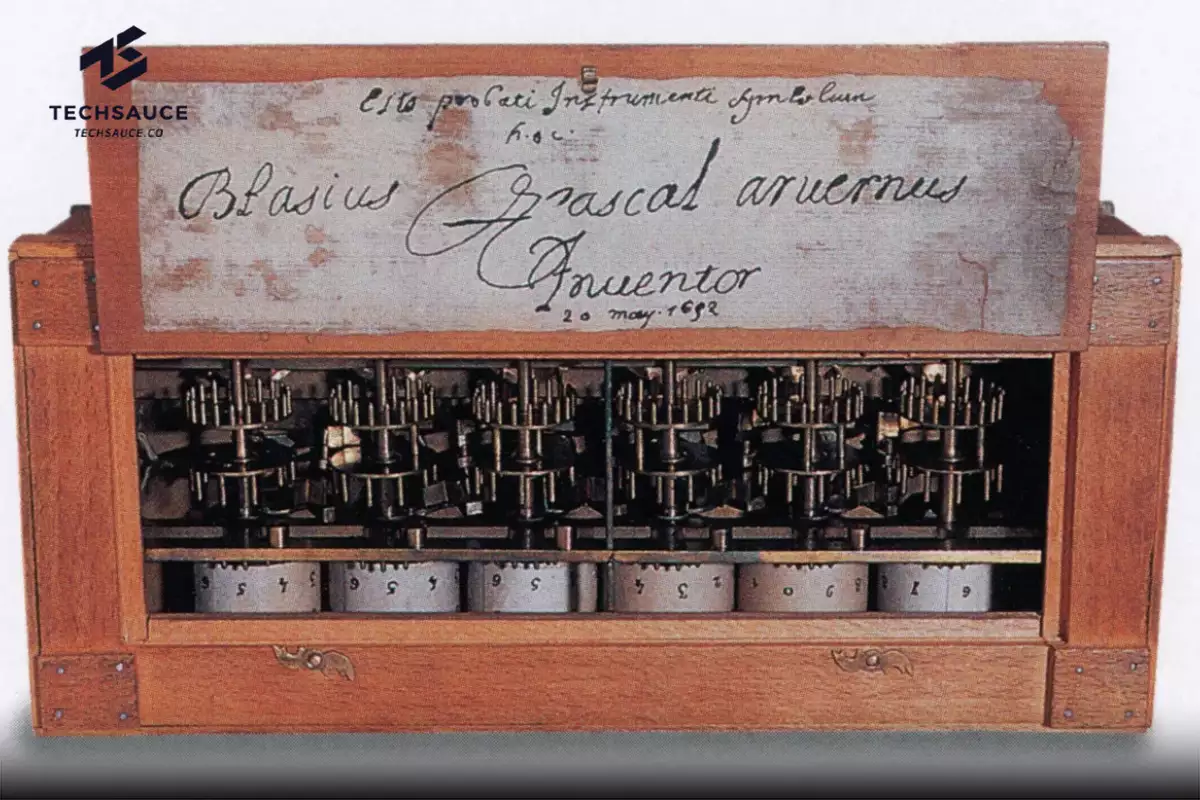 TECHSAUCE
TECHSAUCE.CO
Esto probati Instrumenti symbolum
hoc.
Blasius Pascal aruernus
Inuentor
20 may. 1652
6 5 4 3 6 5 4 6 5 4 3 2 1 0 9 7 6